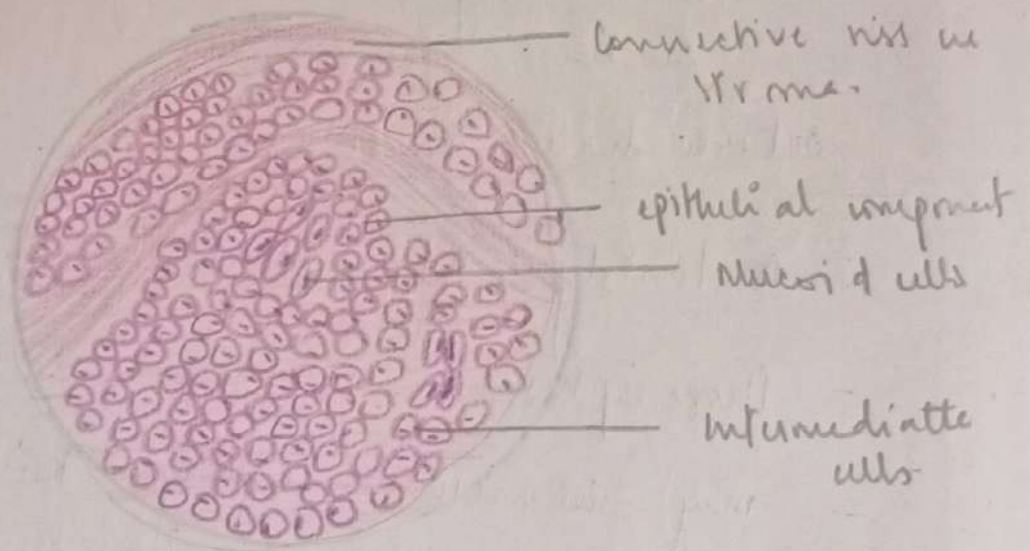 Connective tiss ue
stroma.
epithelial component
Mucoid cells
intermediatte
cells